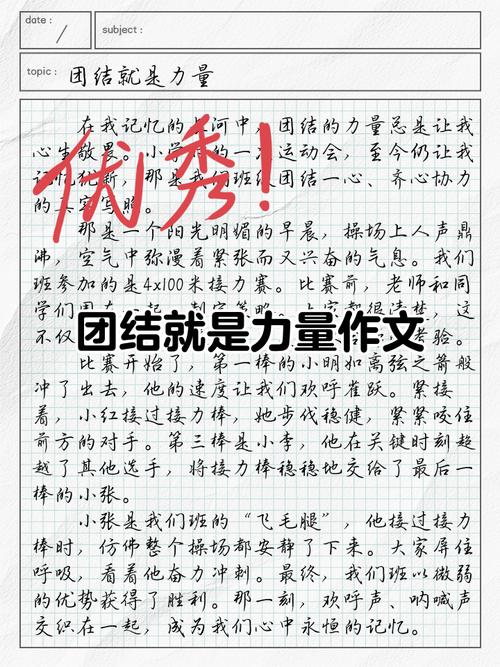 date :
subject :
topic : 团结就是力量
在我记忆的长河中，团结的力量总是让我
心生敬畏。小学时的一次运动会，至今仍让我
记忆犹新，那是我们班级团结一心、齐心协力
的真实写照。
优秀！
那是一个阳光明媚的早晨，操场上人声鼎
沸，空气中弥漫着紧张而又兴奋的气息。我们
班参加的是4x100米接力赛。比赛前，老师和同
学们围在一起，制定策略。大家都很清楚，这
不仅
考验。
团结就是力量作文
比赛开始了，第一棒的小明如离弦之箭般
冲了出去，他的速度让我们欢呼雀跃。紧接
着，小红接过接力棒，她步伐稳健，紧紧咬住
前方的对手。第三棒是小李，他在关键时刻超
越了其他选手，将接力棒稳稳地交给了最后一
棒的小张。
小张是我们班的“飞毛腿”，他接过接力
棒时，仿佛整个操场都安静了下来。大家屏住
呼吸，看着他奋力冲刺。最终，我们班以微弱
的优势获得了胜利。那一刻，欢呼声、呐喊声
交织在一起，成为我们心中永恒的记忆。